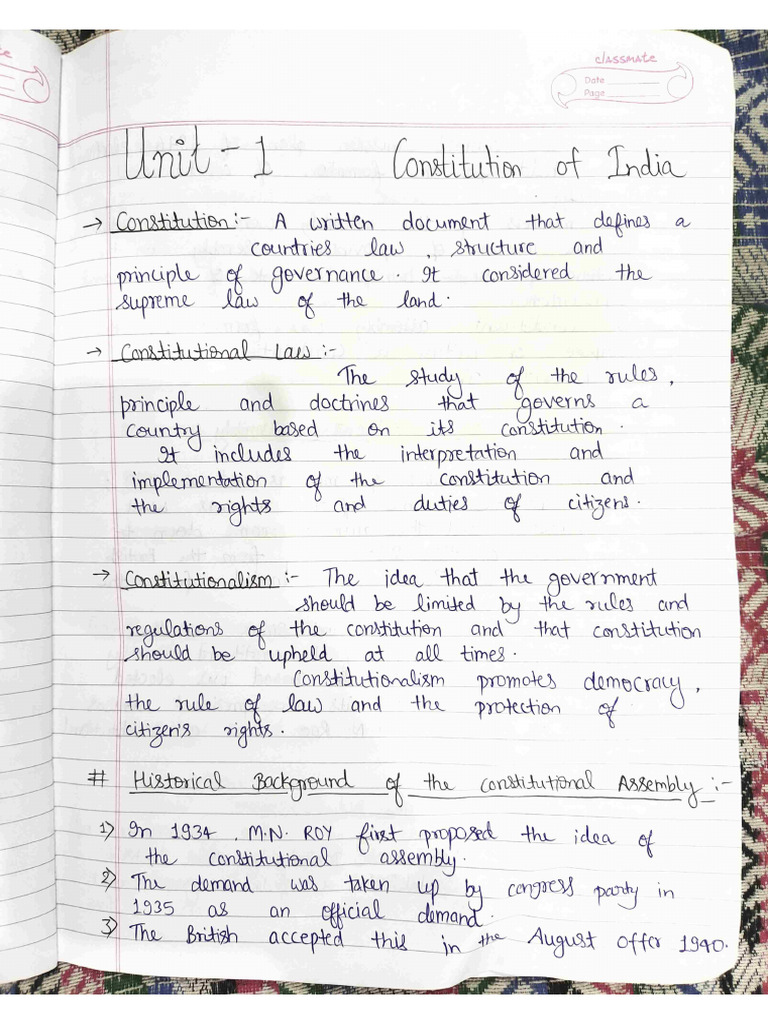 classmate
Date
Page
Unit - 1 Constitution of India
→ Constitution :- A written document that defines a
countries law, structure and
principle of governance. It considered the
supreme law of the land.
→ Constitutional Law :-
The study of the rules,
principle and doctrines that governs a
country based on its constitution.
It includes the interpretation and
implementation of the constitution and
the rights and duties of citizens.
→ Constitutionalism :- The idea that the government
should be limited by the rules and
regulations of the constitution and that constitution
should be upheld at all times.
Constitutionalism promotes democracy,
the rule of law and the protection of
citizen's rights.
# Historical Background of the constitutional Assembly :-
1) In 1934, M.N. ROY first proposed the idea of
the constitutional assembly.
2) The demand was taken up by congress party in
1935 as an official demand.
3) The British accepted this in the August offer 1940.